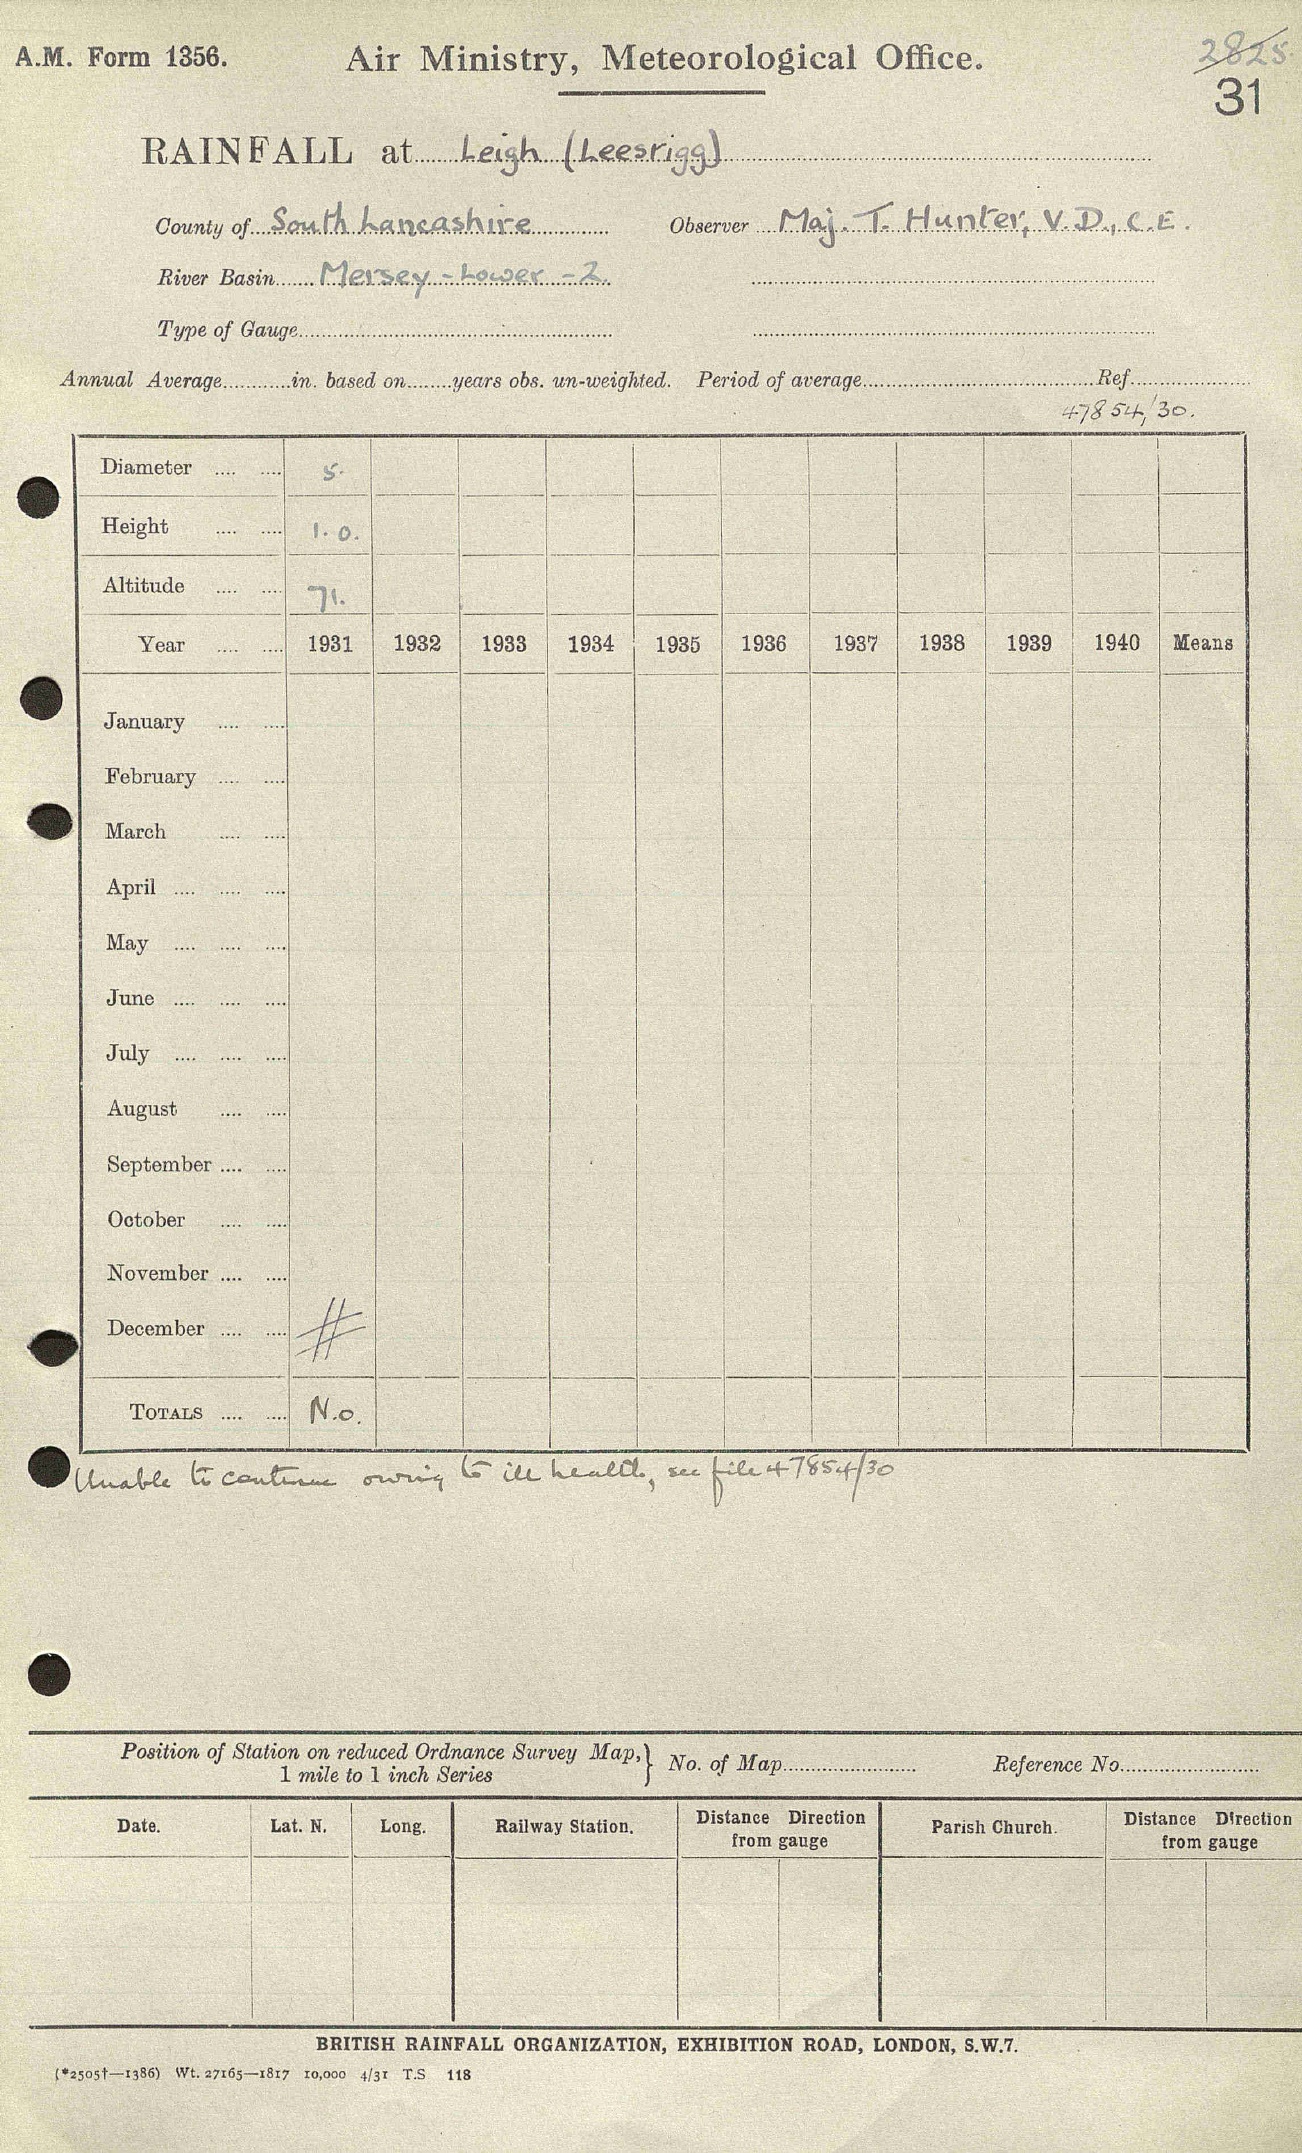 A.M. Form 1356. Air Ministry, Meteorological Office. 2825
31
RAINFALL at Leigh (Leesrigg)
County of South Lancashire Observer Maj. T. Hunter, V.D., C.E.
River Basin Mersey - Lower - 2.
Type of Gauge
Annual Average in. based on years obs. un-weighted. Period of average Ref.
47854/30.
Diameter 5.
Height 1.0.
Altitude 71.
Year 1931 1932 1933 1934 1935 1936 1937 1938 1939 1940 Means
January
February
March
April
May
June
July
August
September
October
November
December #
TOTALS N.o.
Unable to continue owing to ill health, see file 47854/30
Position of Station on reduced Ordnance Survey Map, } No. of Map Reference No.
1 mile to 1 inch Series
Date. Lat. N. Long. Railway Station. Distance Direction Parish Church. Distance Direction
from gauge from gauge
BRITISH RAINFALL ORGANIZATION, EXHIBITION ROAD, LONDON, S.W.7.
(*2505†—1386) Wt. 27165—1817 10,000 4/31 T.S 118